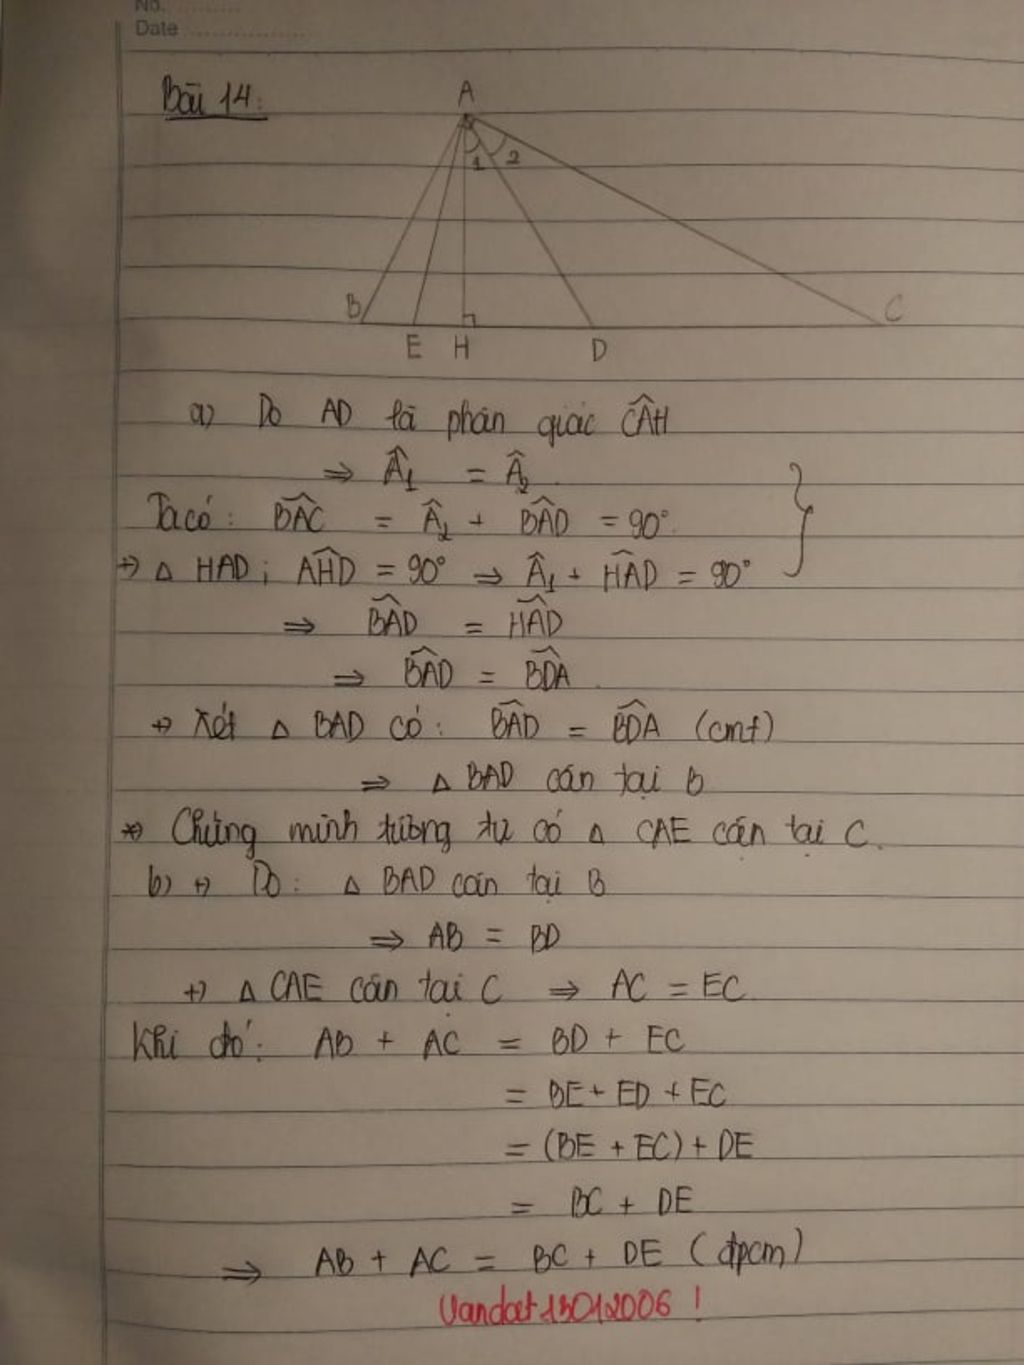 No. ..............
Date ..................
Bài 14:
A
1 2
B E H D C
a) Do AD là phân giác CÂH
⇒ Â₁ = Â₂
Ta có: BÂC = Â₂ + BÂD = 90°
+) △ HAD; AĤD = 90° ⇒ Â₁ + HÂD = 90°
⇒ BÂD = HÂD
⇒ BÂD = BD̂A
+) Xét △ BAD có: BÂD = BD̂A (cmt)
⇒ △ BAD cân tại B
*) Chứng minh tương tự có △ CAE cân tại C.
b) +) Do: △ BAD cân tại B
⇒ AB = BD
+) △ CAE cân tại C ⇒ AC = EC
Khi đó: AB + AC = BD + EC
= BE + ED + EC
= (BE + EC) + DE
= BC + DE
⇒ AB + AC = BC + DE (đpcm)
Vandat13012006 !